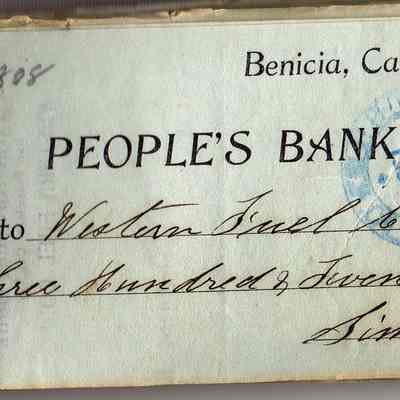 308
Benicia, Ca
PEOPLE'S BANK
to Western Fuel C
hree Hundred & Twen
Sim